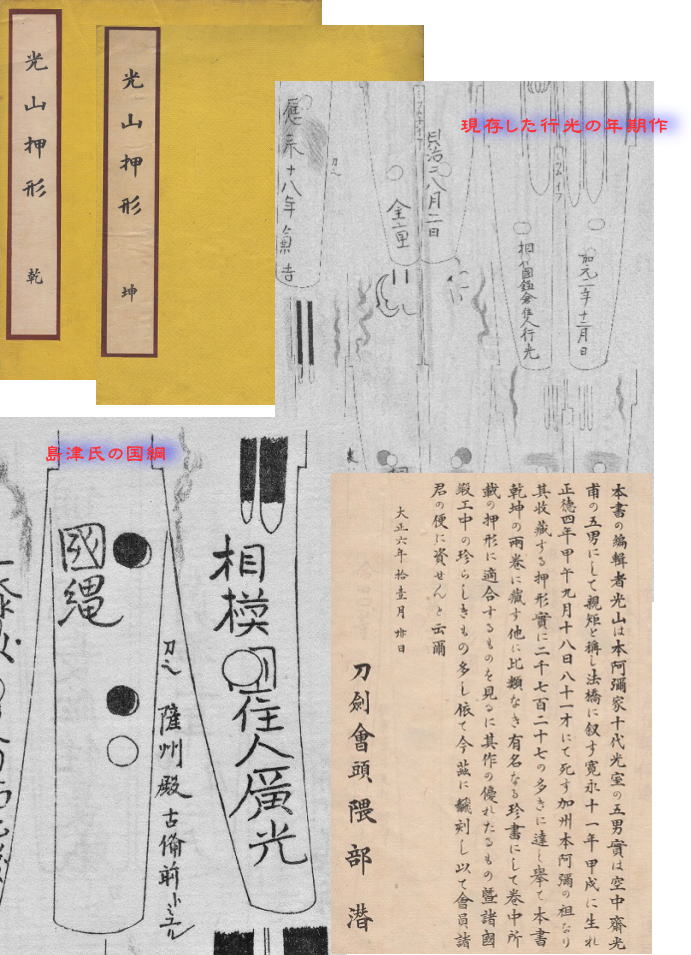 光山押形 乾
光山押形 坤
現存した行光の年期作
應永十八年
貞治二八月二日
嘉元二年十二月日
相州國鎌倉住人行光
島津氏の国綱
國縄
刀之
薩州殿 古備前
相模国住人廣光
本書の編輯者光山は本阿彌家十代光室の五男實は空中齋光
甫の五男にして親矩と稱し法橋に叙す寛永十一年甲戌に生れ
正徳四年甲午九月十八日八十一才にて死す加州本阿彌の祖なり
其收藏する押形實に二千七百二十七の多きに達し擧て本書
乾坤の兩巻に蔵す他に比類なき有名なる珍書にして巻中所
載の押形に適合するものを見るに其作の優れたるもの曁諸國
鍛工中の珍らしきもの多し依て今茲に飜刻し以て會員諸
君の便に資せんと云爾
大正六年拾壹月
刀劍會頭 隈部 潜